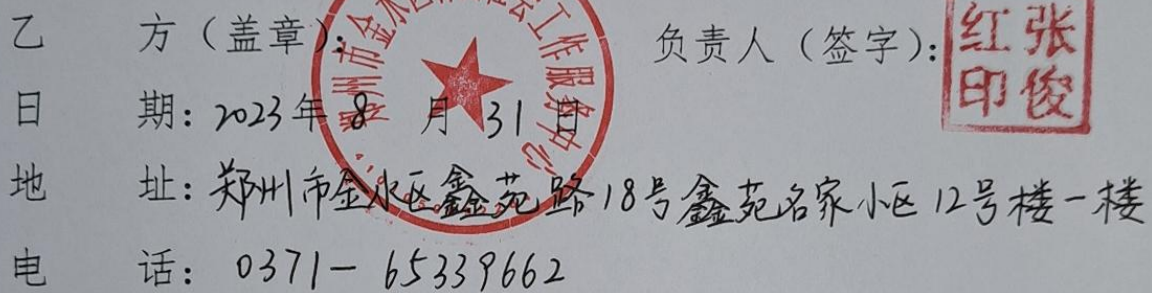 乙 方（盖章）： 负责人（签字）：
张俊红印
日 期：2023年 8 月 31 日
地 址：郑州市金水区鑫苑路18号鑫苑名家小区12号楼一楼
电 话：0371-65339662
郑州市金水 社会工作服务中心